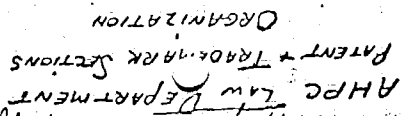 AHPC LAW DEPARTMENT
PATENT + TRADEMARK SECTIONS
ORGANIZATION